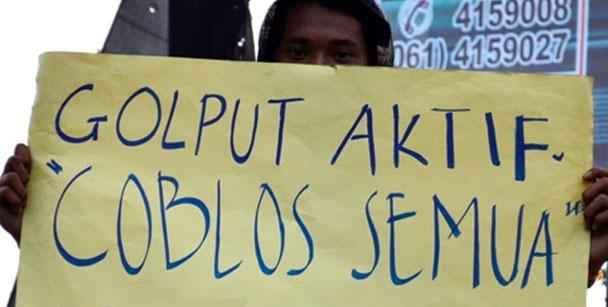 4159008
061) 4159027
GOLPUT AKTIF.
"COBLOS SEMUA"